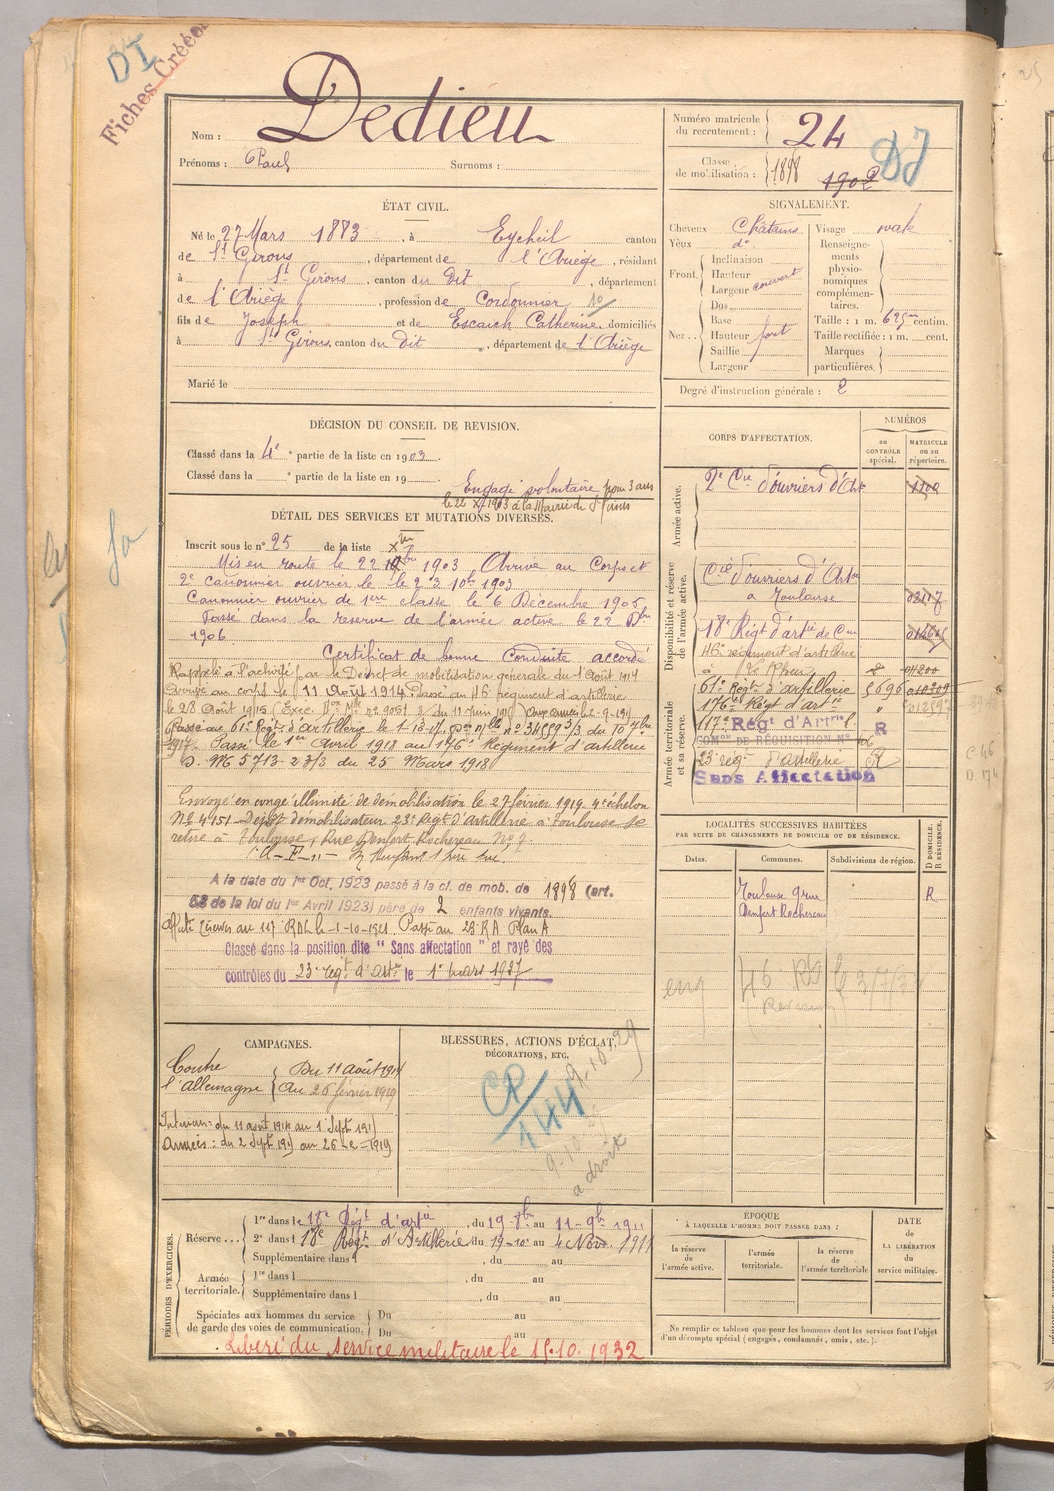 DI
Fiches Créées
Nom : Dedieu
Prénoms : Paul Surnoms :
Numéro matricule du recrutement : 24
Classe de mobilisation : 1898 1902
ÉTAT CIVIL.
Né le 27 Mars 1883, à Eycheil canton
de St Girons, département de l'Ariège, résidant
à St Girons, canton du dit, département
de l'Ariège, profession de Cordonnier
fils de Joseph et de Escaich Catherine, domiciliés
à St Girons, canton du dit, département de l'Ariège
Marié le
SIGNALEMENT.
Cheveux Châtains
Yeux do
Front. Inclinaison
Hauteur
Largeur couvert
Nez.. Dos
Base
Hauteur fort
Saillie
Largeur
Visage ovale
Renseignements physionomiques complémentaires.
Taille : 1 m. 625 centim.
Taille rectifiée : 1 m. cent.
Marques particulières.
Degré d'instruction générale : 2
DÉCISION DU CONSEIL DE REVISION.
Classé dans la 4e partie de la liste en 1903.
Classé dans la e partie de la liste en 19
Engagé volontaire pour 3 ans
le 22 1903 à la Mairie de St Girons
DÉTAIL DES SERVICES ET MUTATIONS DIVERSES.
Inscrit sous le no 25 de la liste
Mis en route le 22 1903 Arrivé au Corps et
2e canonnier ouvrier le le 23 10bre 1903
Canonnier ouvrier de 1ere classe le 6 Décembre 1905
Passé dans la réserve de l'armée active le 22 Xbre
1906
Certificat de bonne Conduite accordé
Rappelé à l'activité par le Décret de mobilisation générale du 1 Août 1914
Arrivé au corps le 11 Août 1914. Passé au 46 régiment d'artillerie
le 28 Août 1915
Passé au 61e Régt d'artillerie le 1-10-17. no 34559 3/3 du 10 7bre
1917. Passé le 1er Avril 1918 au 176e Régiment d'artillerie
D. M 5713-2 3/3 du 25 Mars 1918
Envoyé en congé illimité de démobilisation le 27 février 1919 4e échelon
No 4151 Dépôt démobilisateur 23e Régt d'Artillerie à Toulouse se
retire à Toulouse, Rue Denfert Rochereau No 7
A la date du 1er Oct. 1923 passé à la cl. de mob. de 1898 (art.
58 de la loi du 1er Avril 1923) père de 2 enfants vivants.
Affecté Réserves au 117 RAL le 1-10-1921. Passé au 23 RA Plan A
Classé dans la position dite "Sans affectation" et rayé des
contrôles du 23e régt d'artie le 1er mars 1927
CORPS D'AFFECTATION.
NUMÉROS
au CONTRÔLE spécial.
MATRICULE ou au répertoire.
Armée active.
2e Cie d'ouvriers d'Art
Disponibilité et réserve de l'armée active.
Cie d'ouvriers d'Artie
à Toulouse
18e Régt d'artie de Cne
46e régiment d'artillerie
04200
Armée territoriale et sa réserve.
61e Régt d'artillerie 5696
176e Régt d'artie
117e Régt d'Artrie R
COMon DE RÉQUISITION No 406
23e régt d'artillerie R
Sans Affectation
C 46
D 174
LOCALITÉS SUCCESSIVES HABITÉES
PAR SUITE DE CHANGEMENTS DE DOMICILE OU DE RÉSIDENCE.
Dates. Communes. Subdivisions de région. D DOMICILE. R RÉSIDENCE.
Toulouse 9 rue R
Denfert Rochereau
CAMPAGNES.
Contre l'allemagne
Du 11 août 1914
Au 26 février 1919
Intérieur : du 11 août 1914 au 1 Sept 1915
Armées : du 2 Sept 1915 au 26-2-1919
BLESSURES, ACTIONS D'ÉCLAT,
DÉCORATIONS, ETC.
CP/144
9-10-29
a droit
PÉRIODES D'EXERCICES.
Réserve... 1re dans le 18e Régt d'artie, du 19-8bre au 11-9bre 1911
2e dans l 18e Régt d'Artillerie du 19-10 au 4 Nov. 1911
Supplémentaire dans l , du au
Armée territoriale. 1re dans l , du au
Supplémentaire dans l , du au
Spéciales aux hommes du service de garde des voies de communication. Du au
Du au
Libéré du service militaire le 15.10.1932
ÉPOQUE
À LAQUELLE L'HOMME DOIT PASSER DANS :
la réserve de l'armée active.
l'armée territoriale.
la réserve de l'armée territoriale
DATE de LA LIBÉRATION du service militaire.
Ne remplir ce tableau que pour les hommes dont les services font l'objet
d'un décompte spécial (engagés, condamnés, omis, etc.).